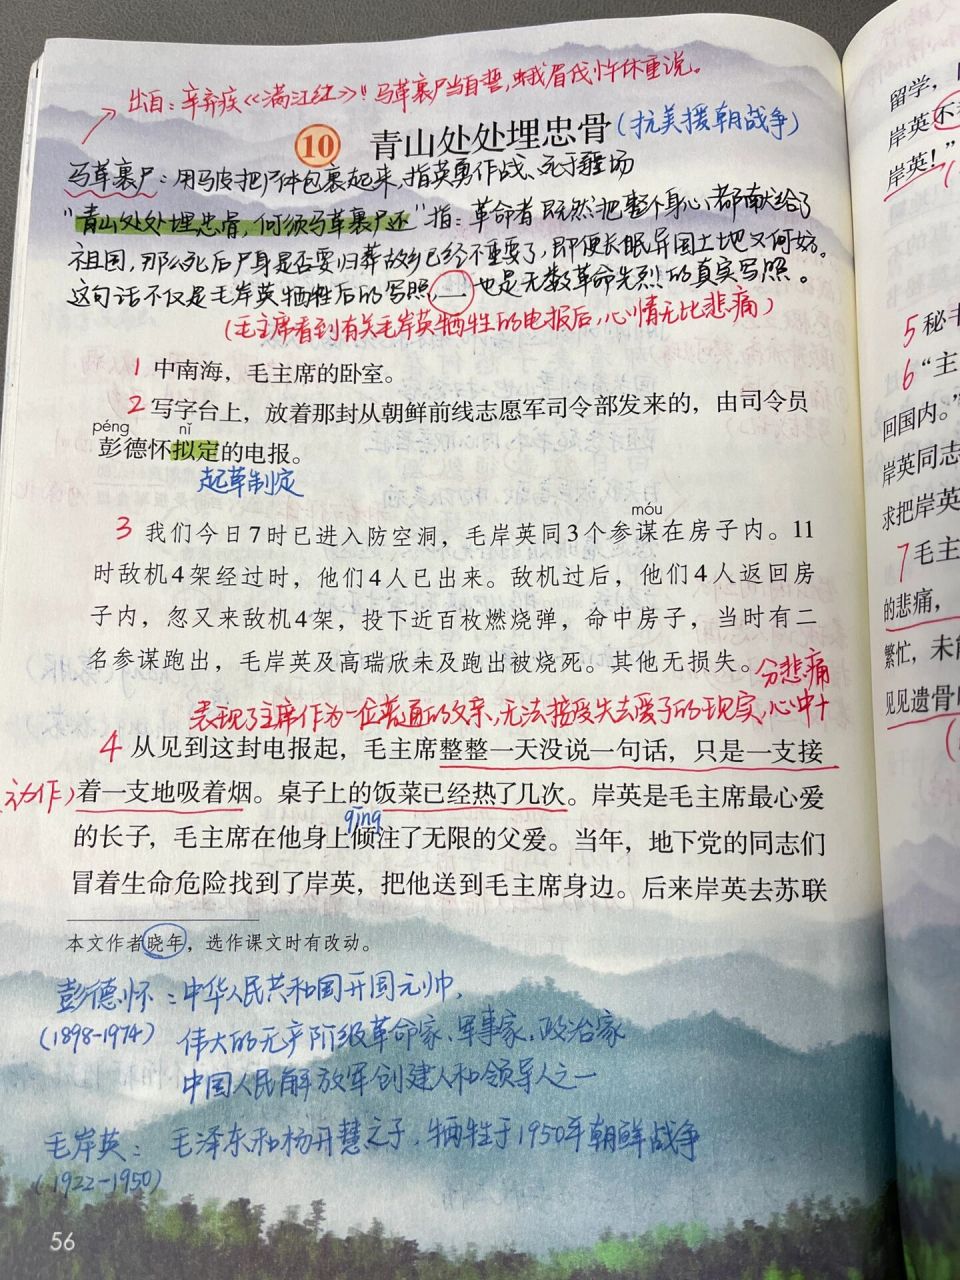 出自：辛弃疾《满江红》“马革裹尸当自誓，蛾眉伐性休重说。
10 青山处处埋忠骨（抗美援朝战争）
马革裹尸：用马皮把尸体包裹起来，指英勇作战、死于疆场
“青山处处埋忠骨，何须马革裹尸还”指：革命者既然把整个身心都献给了
祖国，那么死后尸身是否要归葬故乡已经不重要了，即便长眠异国土地又何妨。
这句话不仅是毛岸英牺牲后的写照，也是无数革命先烈的真实写照。
（毛主席看到有关毛岸英牺牲的电报后，心情无比悲痛）
1 中南海，毛主席的卧室。
2 写字台上，放着那封从朝鲜前线志愿军司令部发来的，由司令员
péng nǐ
彭德怀拟定的电报。
起草制定
móu
3 我们今日7时已进入防空洞，毛岸英同3个参谋在房子内。11
时敌机4架经过时，他们4人已出来。敌机过后，他们4人返回房
子内，忽又来敌机4架，投下近百枚燃烧弹，命中房子，当时有二
名参谋跑出，毛岸英及高瑞欣未及跑出被烧死。其他无损失。
分悲痛
表现了主席作为一位普通的父亲，无法接受失去爱子的现实，心中十
4 从见到这封电报起，毛主席整整一天没说一句话，只是一支接
动作）着一支地吸着烟。桌子上的饭菜已经热了几次。岸英是毛主席最心爱
qīng
的长子，毛主席在他身上倾注了无限的父爱。当年，地下党的同志们
冒着生命危险找到了岸英，把他送到毛主席身边。后来岸英去苏联
本文作者晓年，选作课文时有改动。
彭德怀：中华人民共和国开国元帅，
（1898-1974） 伟大的无产阶级革命家、军事家、政治家
中国人民解放军创建人和领导人之一
毛岸英： 毛泽东和杨开慧之子，牺牲于1950年朝鲜战争
（1922-1950）
56
留学，
岸英不
岸英！”
5 秘书
6 “主
回国内。”
岸英同志
求把岸英
7 毛主
的悲痛，
繁忙，未能
见见遗骨